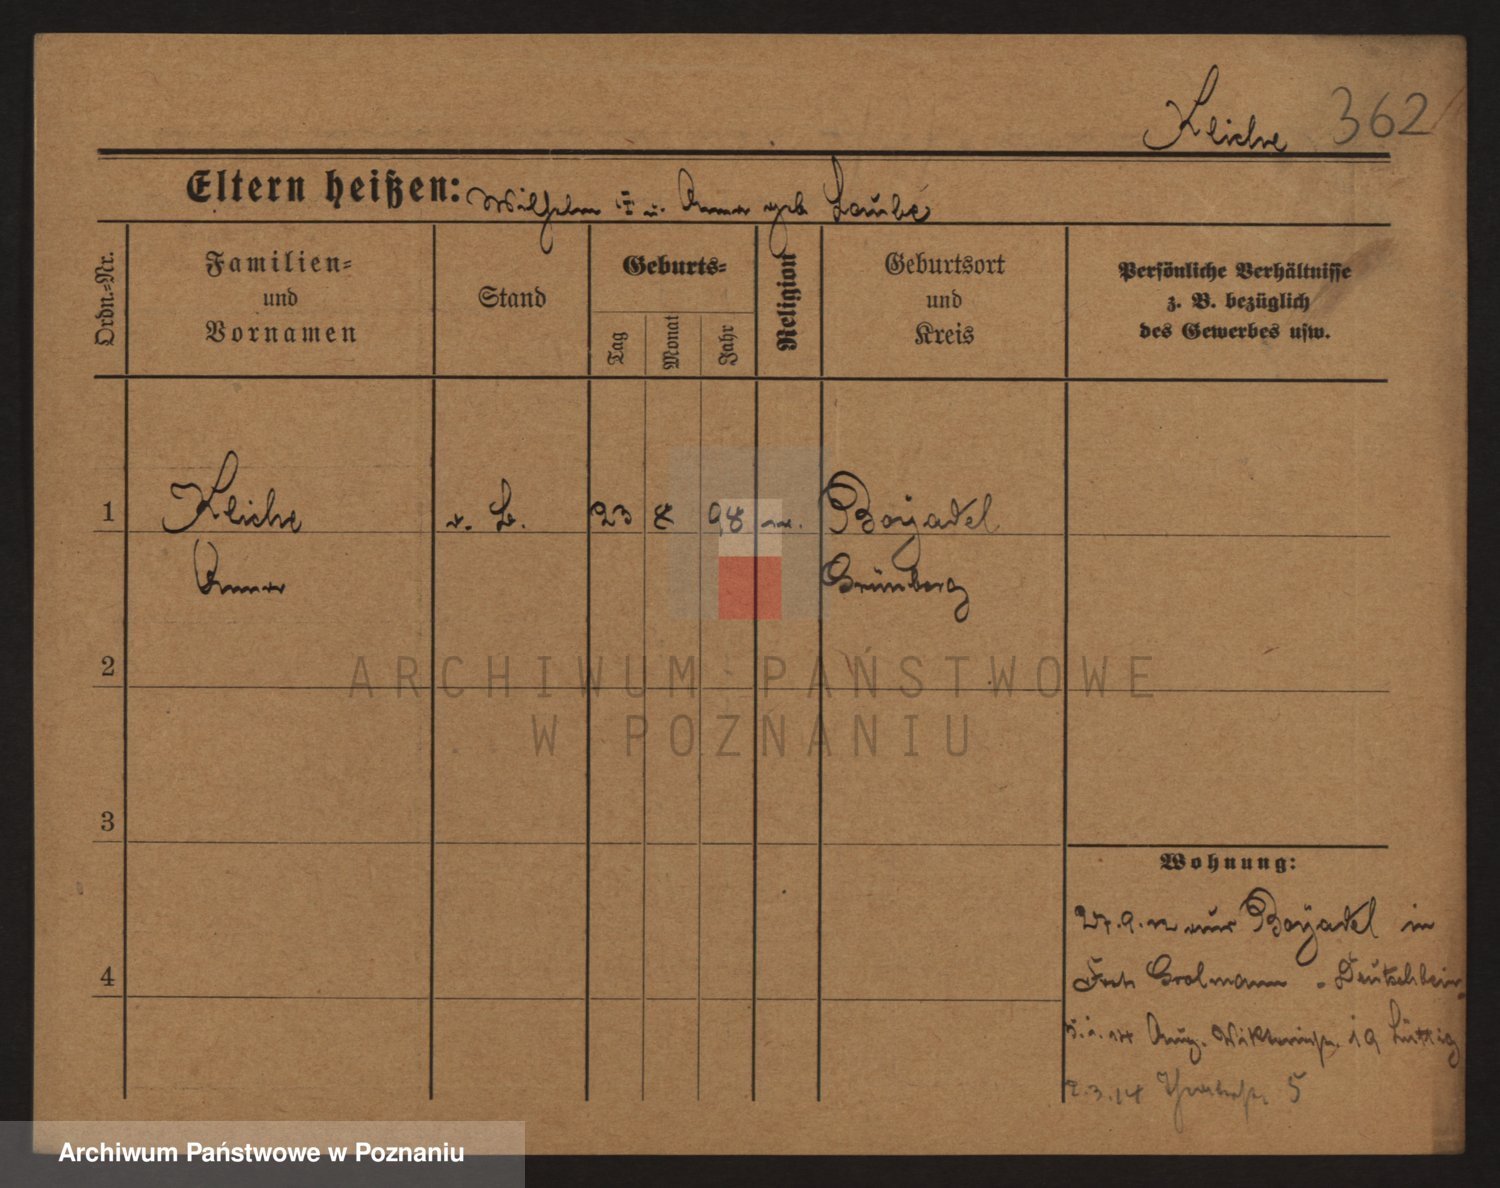 Kliche 362
Eltern heißen: Wilhelm u. Anna geb Laube
Ordn.=Nr.
Familien=
und
Vornamen
Stand
Geburts=
Tag
Monat
Jahr
Religion
Geburtsort
und
Kreis
Persönliche Verhältnisse
z. B. bezüglich
des Gewerbes usw.
1 Kliche 23 8 98 Boyadel
Anna Grünberg
2
ARCHIWUM PAŃSTWOWE
W POZNANIU
3
Wohnung:
27.9.12 aus Boyadel in
Grolmann
4
Aug. Viktoriastr. 19 Lüttig
2.3.14 5
Archiwum Państwowe w Poznaniu